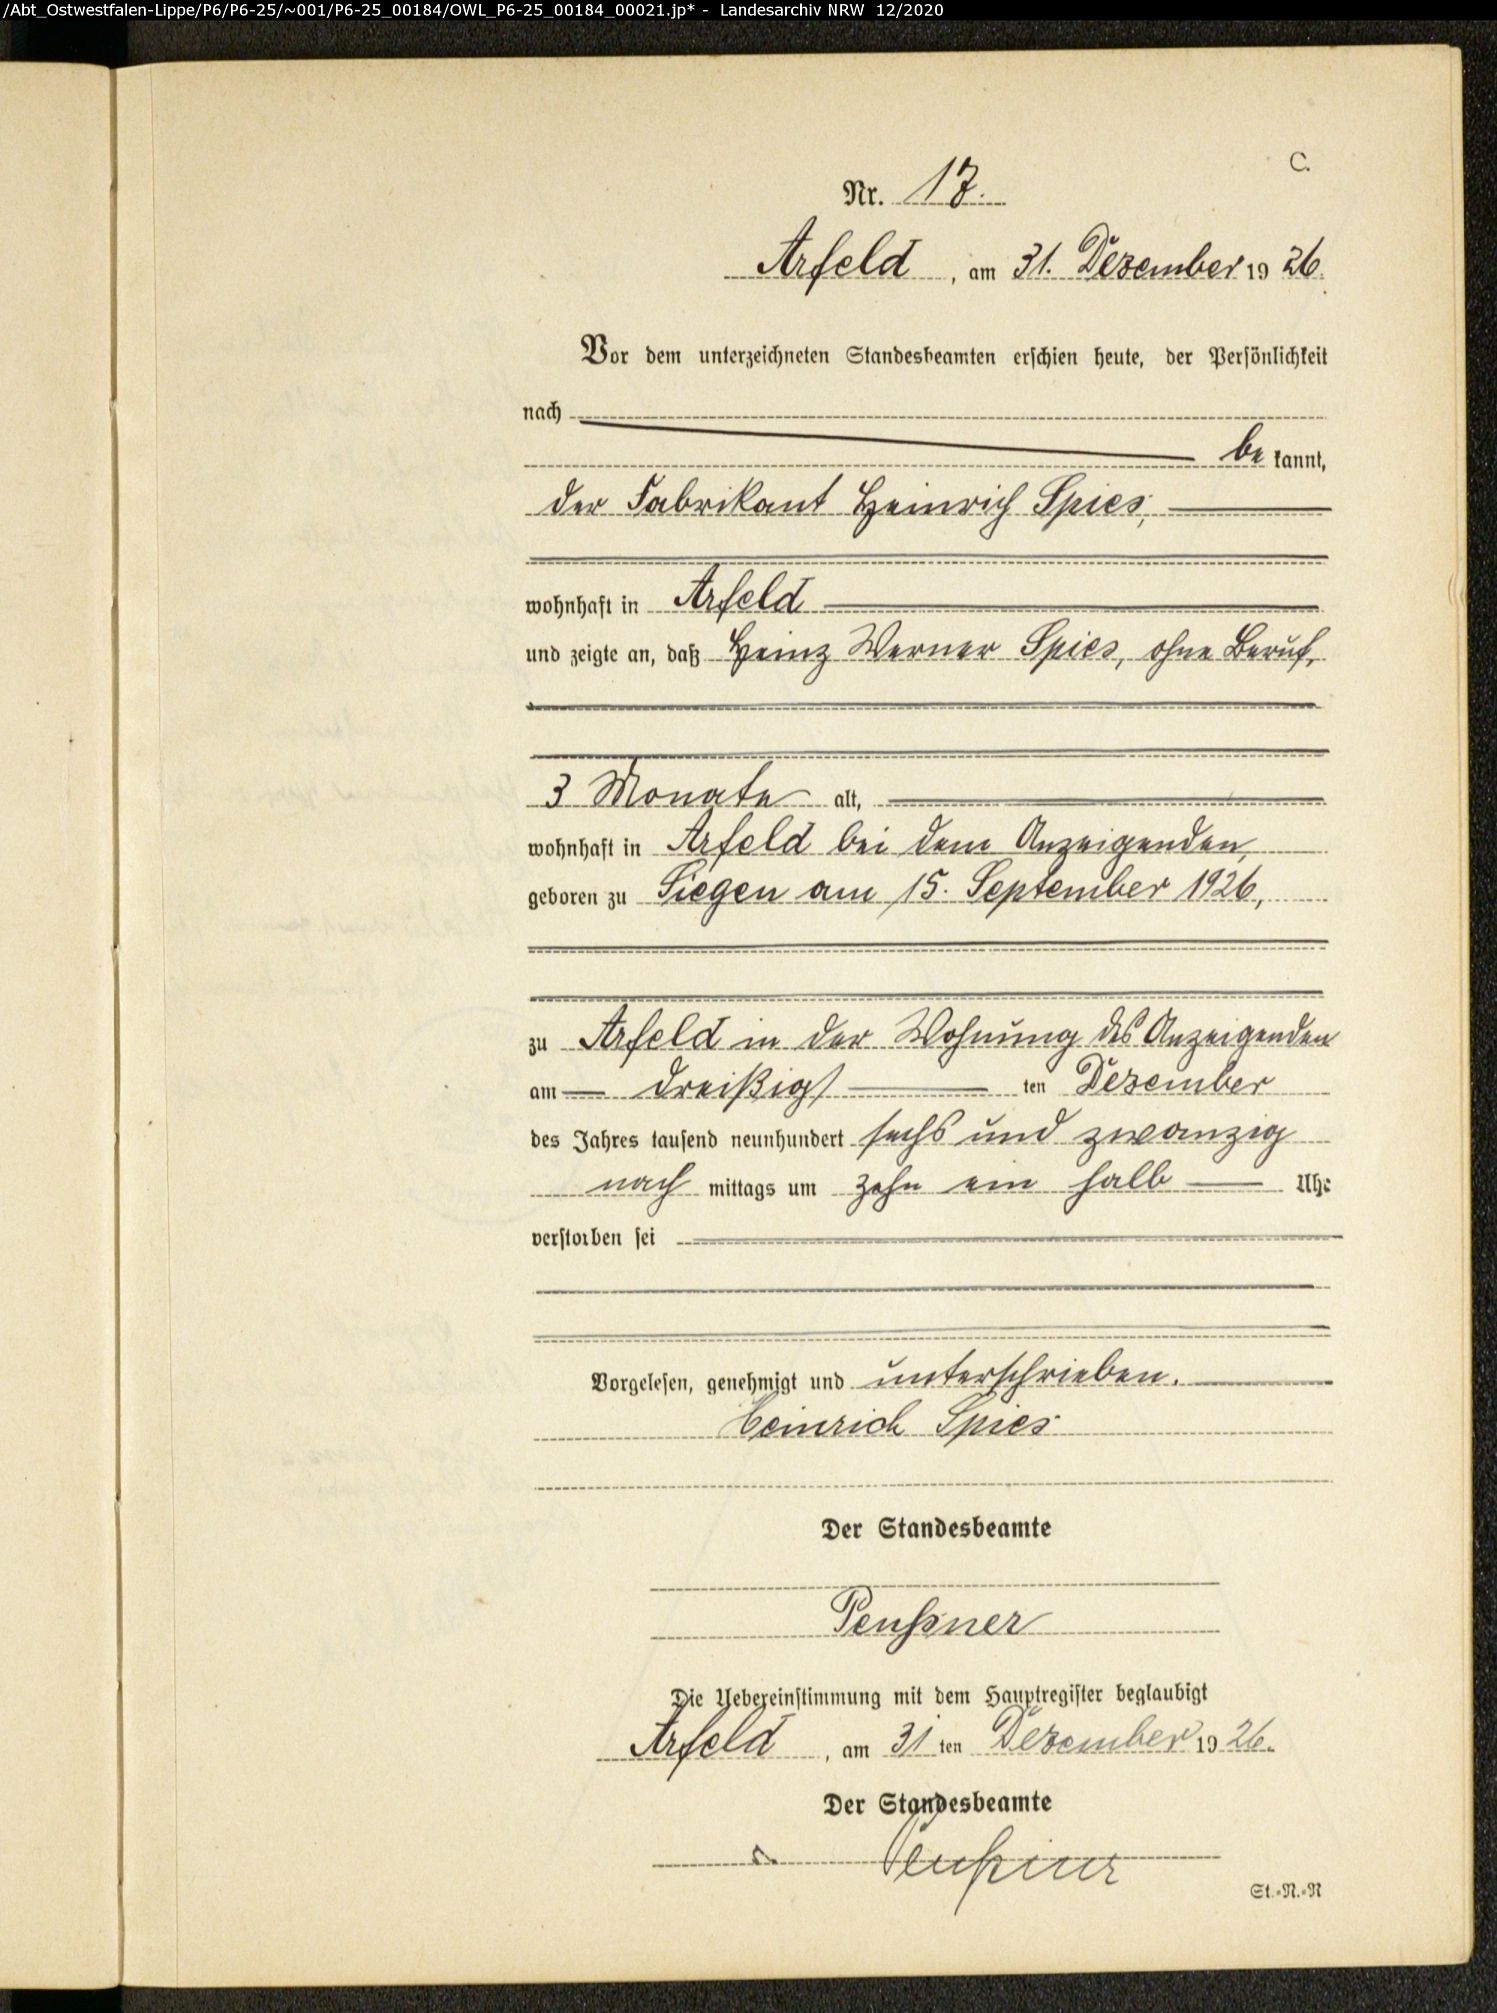 /Abt_Ostwestfalen-Lippe/P6/P6-25/~001/P6-25_00184/OWL_P6-25_00184_00021.jp* - Landesarchiv NRW 12/2020
C.
Nr. 17.
Arfeld, am 31. Dezember 1926.
Vor dem unterzeichneten Standesbeamten erschien heute, der Persönlichkeit
nach
be kannt,
der Fabrikant Heinrich Spies,
wohnhaft in Arfeld
und zeigte an, daß Heinz Werner Spies, ohne Beruf,
3 Monate alt,
wohnhaft in Arfeld bei dem Anzeigenden,
geboren zu Siegen am 15. September 1926,
zu Arfeld in der Wohnung des Anzeigenden
am dreißigsten Dezember
des Jahres tausend neunhundert sechs und zwanzig
nach mittags um zehn ein halb Uhr
verstorben sei
Vorgelesen, genehmigt und unterschrieben.
Heinrich Spies
Der Standesbeamte
Die Uebereinstimmung mit dem Hauptregister beglaubigt
Arfeld, am 31ten Dezember 1926.
Der Standesbeamte
St.-N.-R